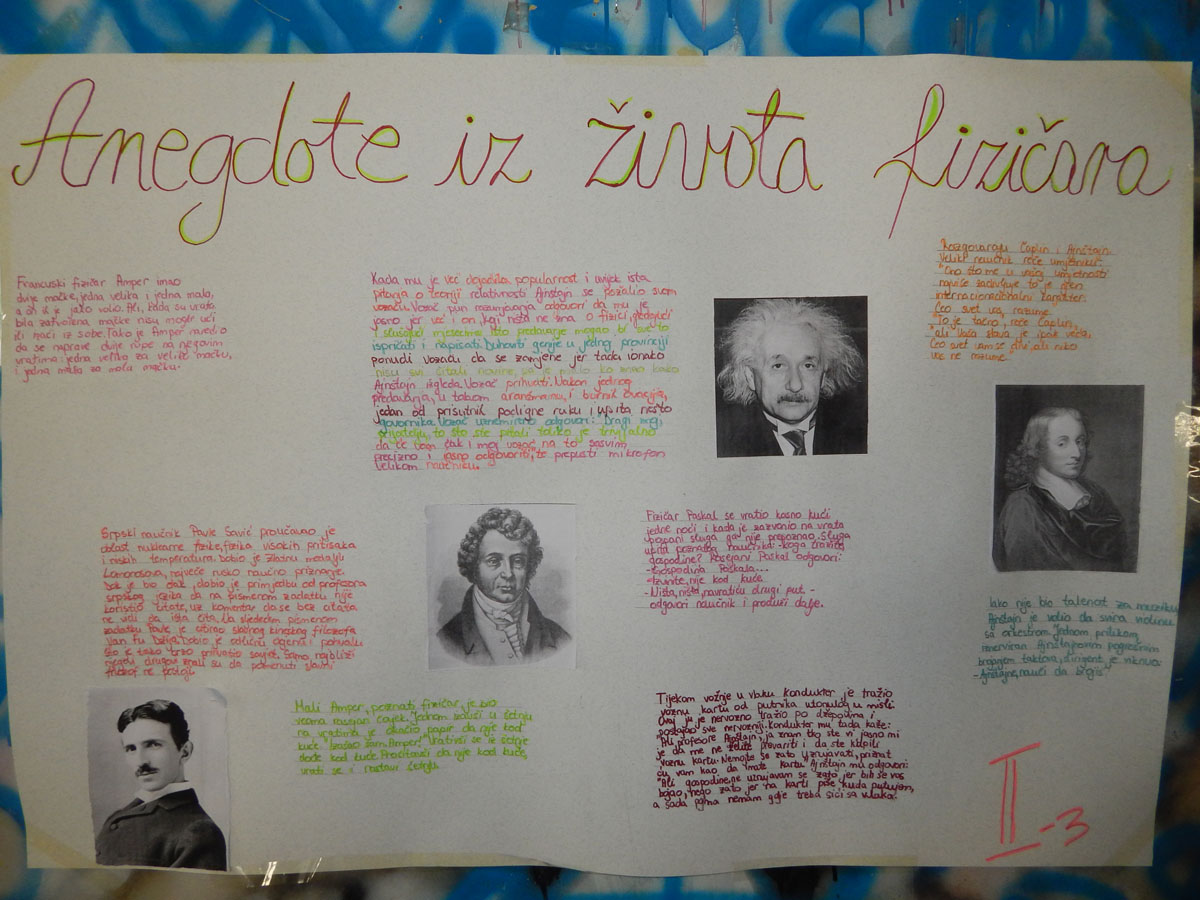 Anegdote iz života fizičara
Francuski fizičar Amper imao
dvije mačke, jedna velika i jedna mala,
a on ih je jako volio. Ali, kada su vrata
bila zatvorena, mačke nisu mogle ući
ili izaći iz sobe. Tako je Amper naredio
da se naprave dvije rupe na njegovim
vratima: jedna velika za veliku mačku,
i jedna mala za malu mačku.
Kada mu je već dojadila popularnost i uvijek ista
pitanja o teoriji relativnosti Ajnštajn se požalio svom
vozaču. Vozač pun razumijevanja odgovori da mu je
jasno jer već i on, koji ništa ne zna o fizici, gledajući
i slušajući mjesecima isto predavanje mogao bi sve to
ispričati i napisati. Duhoviti genije u jednoj provinciji
ponudi vozaču da se zamjene jer tada ionako
nisu svi čitali novine, pa je malo ko znao kako
Ajnštajn izgleda. Vozač prihvati. Nakon jednog
predavanja, u tokom aranžmanu, i burnih ovacija,
jedan od prisutnih podigne ruku i upita nešto
govornika. Vozač uznemireno odgovori: Dragi moj
prijatelju, to što ste pitali toliko je trivijalno
da će Vam čak i moj vozač na to sasvim
precizno i jasno odgovoriti", te prepusti mikrofon
velikom naučniku.
Razgovaraju Čaplin i Ajnštajn.
Veliki naučnik reče umjetniku:
"Ono što me u vašoj umjetnosti
najviše zadivljuje, to je njen
internacionalni karakter.
Čeo svet vas razume."
"To je tačno, reče Čaplin,
"ali Vaša slava je ipak veća.
Čeo svet Vam se divi, ali niko
vas ne razume."
Srpski naučnik Pavle Savić proučavao je
oblast nuklearne fizike, fizika visokih pritisaka
i niskih temperatura. Dobio je zlatnu medalju
Lomonosova, najveće rusko naučno priznanje.
Dok je bio đak, dobio je primjedbu od profesora
srpskog jezika da na pismenom zadatku nije
koristio citate, uz komentar da se bez citata
ne vidi da išta čita. Na sljedećem pismenom
zadatku Pavle je citirao slavnog kineskog filozofa
Van Fu Delija. Dobio je odličnu ocjenu i pohvalu
što je tako brzo prihvatio savjet. Samo najbliži
njegovi drugovi znali su da pomenuti slavni
filozof ne postoji.
Fizičar Paskal se vratio kasno kući
jedne noći i kada je zazvonio na vrata
pozvani sluga ga nije prepoznao. Sluga
upita poznatog naučnika: -Koga tražite
gospodine? Rasejani Paskal odgovori:
-Gospodina Paskala...
-Izvinite, nije kod kuće.
-Ništa, ništa, navratiću drugi put -
odgovori naučnik i produži dalje.
Iako nije bio talenat za muziku
Ajnštajn je volio da svira violinu
sa orkestrom. Jednom prilikom,
iznerviran Ajnštajnovim pogrešnim
brojanjem taktova, dirigent je viknuo:
-Ajnštajne, nauči da brojiš"
Mali Amper, poznati fizičar, je bio
veoma rasejan čovjek. Jednom izašavši u šetnju
na vratima je okačio papir da nije kod
kuće. "Izašao sam. Amper". Vrativši se iz šetnje
dođe kod kuće. Pročitavši da nije kod kuće,
vrati se i nastavi šetnju.
Tijekom vožnje u vlaku kondukter je tražio
voznu kartu od putnika utonulog u misli.
Ovaj ju je nervozno tražio po džepovima i
postajao sve nervozniji. Kondukter mu tada kaže:
"Ali profesore Ajnštajn, ja znam tko ste vi i jasno mi
je da me ne želite prevariti i da ste kupili
voznu kartu. Nemojte se zato uzrujavati, priznat
ću vam kao da imate kartu". Ajnštajn mu odgovori:
"Ali gospodine, ne uzrujavam se zato jer bih se vas
bojao, nego zato jer na karti piše kuda putujem,
a sada pojma nemam gdje treba sići sa vlaka.
II-3